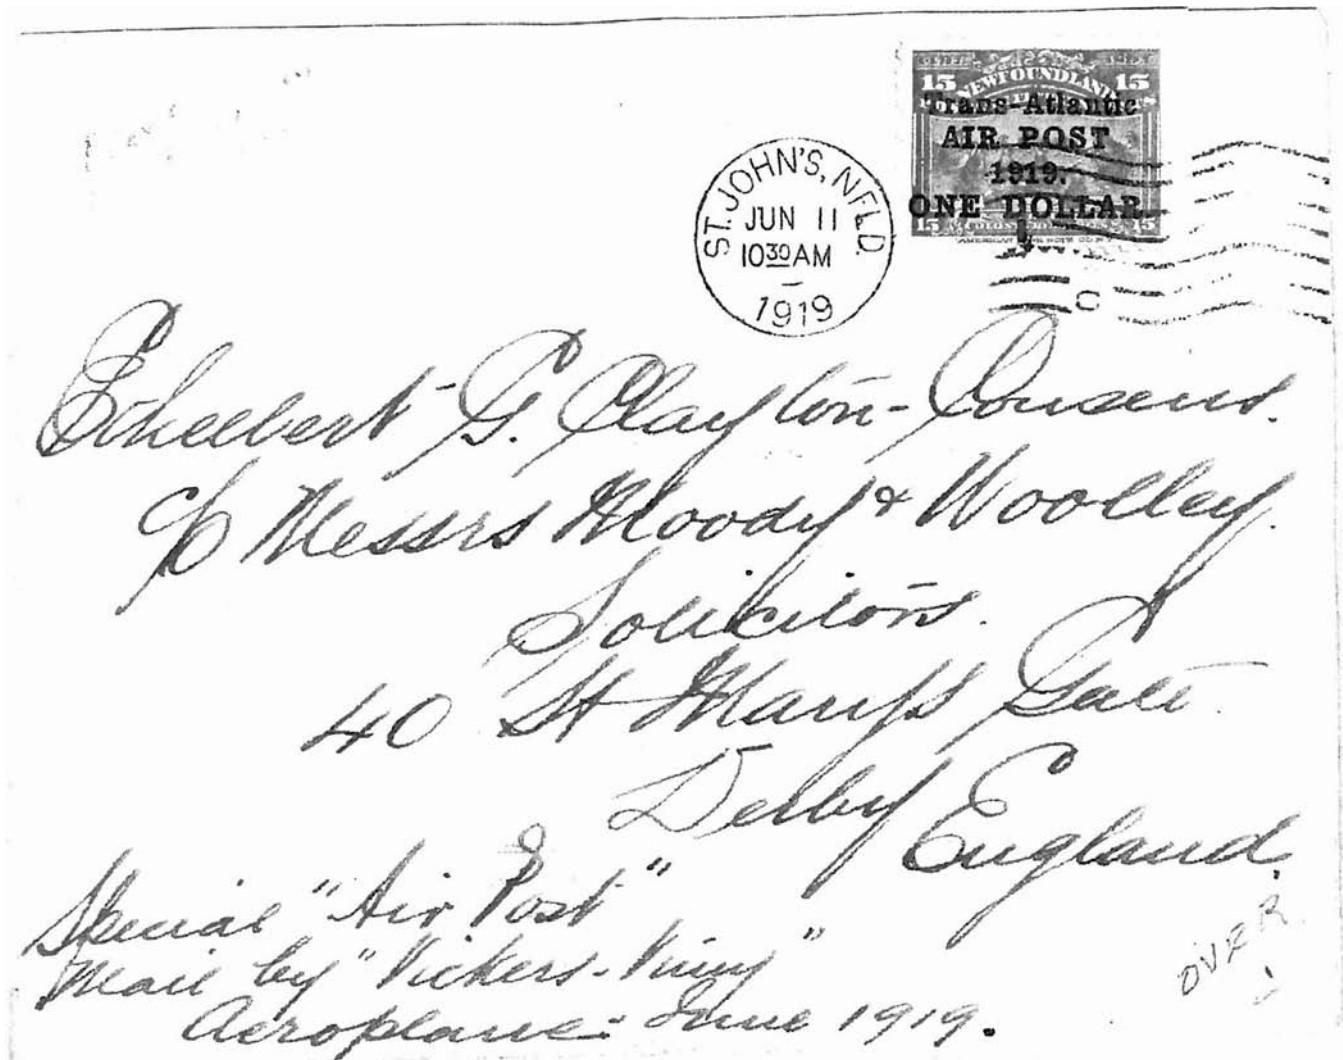 15 NEWFOUNDLAND 15
Trans-Atlantic
AIR POST
1919.
ONE DOLLAR
15 15
ST. JOHN'S, NFLD.
JUN 11
10 30 AM
1919
Ethelbert G. Clayton-Cousens.
c/o Messrs Moody & Woolley.
Solicitors.
40 St Mary's Gate.
Derby
England.
Special "Air Post"
Mail by "Vickers-Vimy"
Aeroplane - June 1919.
OVER